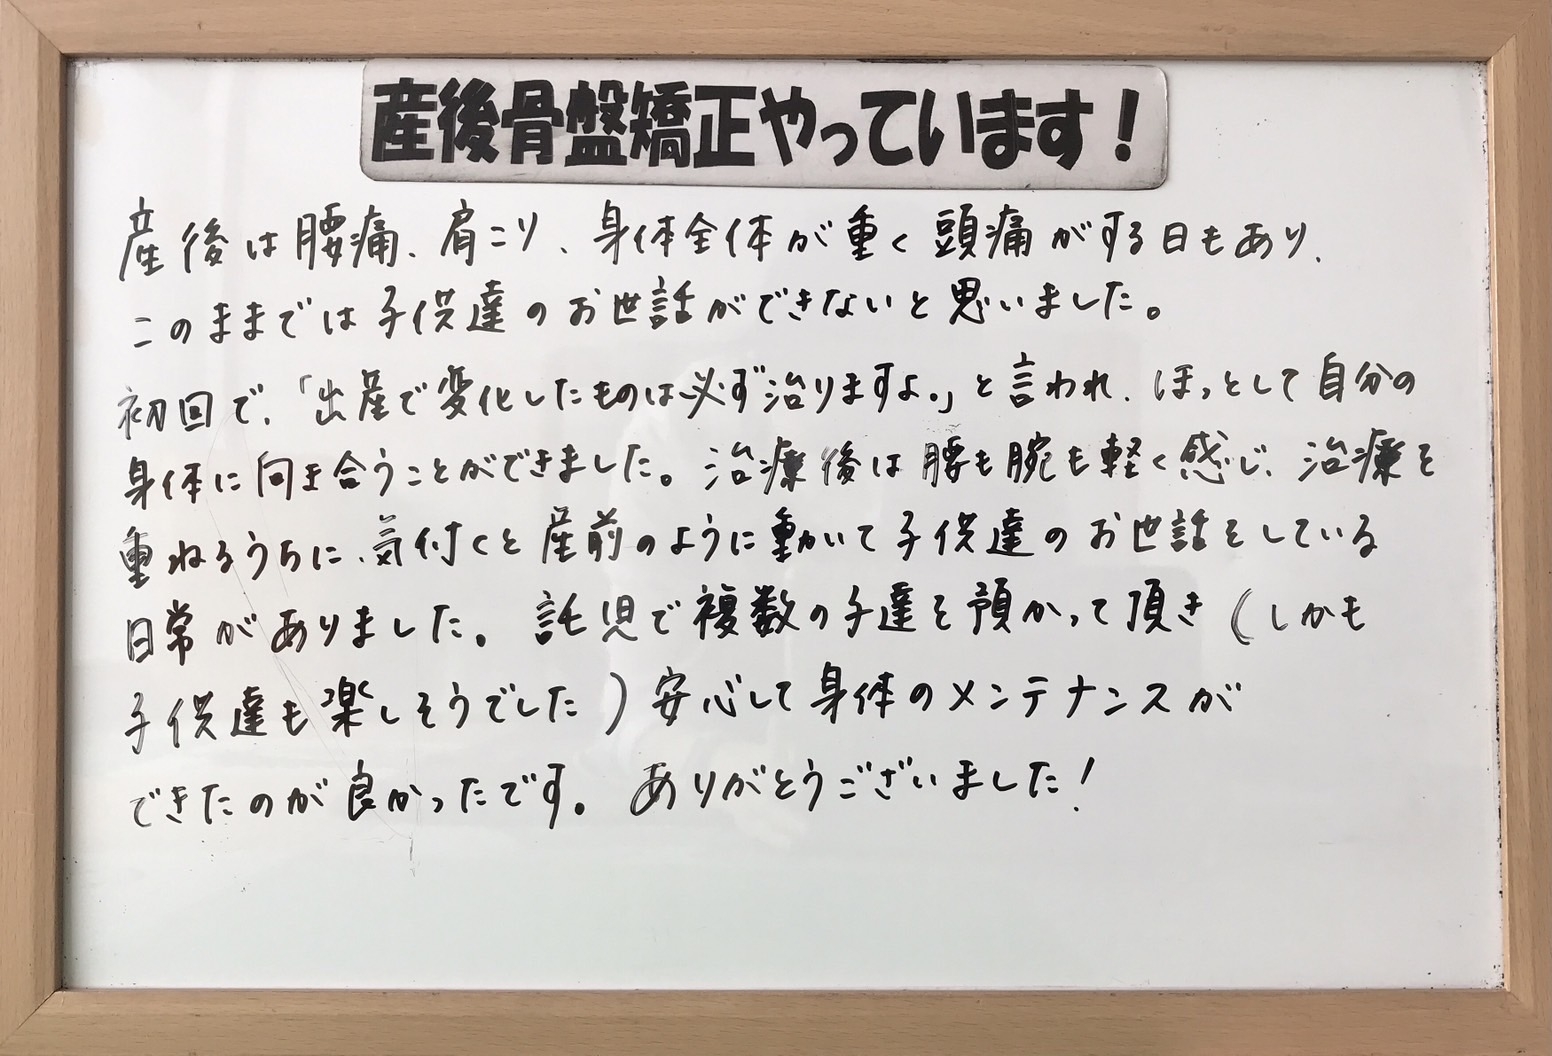 産後骨盤矯正やっています!
産後は腰痛、肩こり、身体全体が重く頭痛がする日もあり、
このままでは子供達のお世話ができないと思いました。
初回で、「出産で変化したものは必ず治りますよ。」と言われ、ほっとして自分の
身体に向き合うことができました。治療後は腰も腕も軽く感じ、治療を
重ねるうちに、気付くと産前のように動いて子供達のお世話をしている
日常がありました。託児で複数の子達を預かって頂き(しかも
子供達も楽しそうでした)安心して身体のメンテナンスが
できたのが良かったです。ありがとうございました!